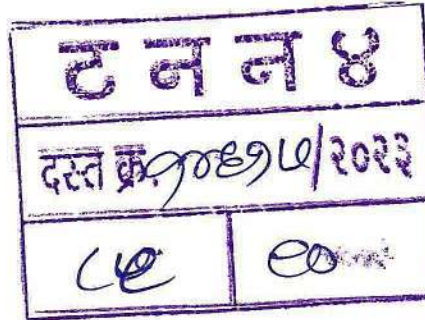 ट न न ४
दस्त क्र. १०६१५/२०२३
८९ ९०